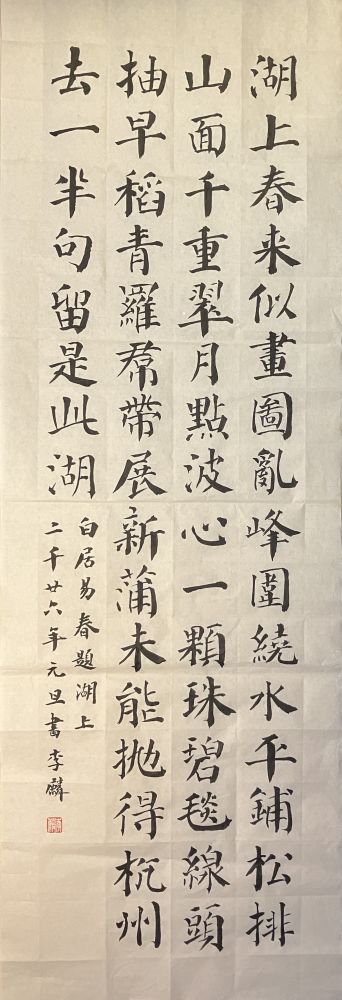 湖上春来似畫圖亂峰圍繞水平鋪松排
山面千重翠月點波心一顆珠碧毯線頭
抽早稻青羅帬帶展新蒲未能拋得杭州
去一半句留是此湖
白居易春題湖上
二千廿六年元旦書李麟